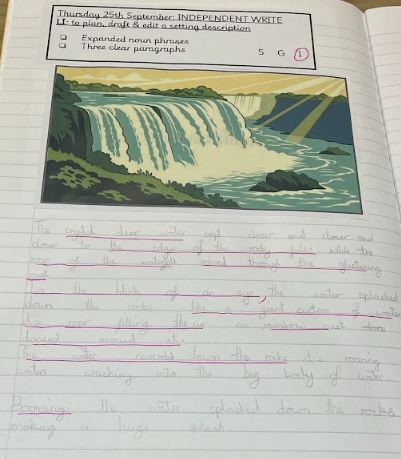 Thursday 25th September: INDEPENDENT WRITE
LI: to plan, draft & edit a setting description
Expanded noun phrases
Three clear paragraphs
S G I
The crystal clear water crept closer and closer and
closer to the edge of the rocky while the
roar of the echoed through the glistening
mist.
In the blink of an eye, the water splashed
down the rocks like a giant curtain of water
it's roar filling the air as rainbow mist
danced around it.
The water cascaded down the rocks it's roaring
waters crashing into the big body of water
Booming the water splashed down the rocks
making a huge splash.